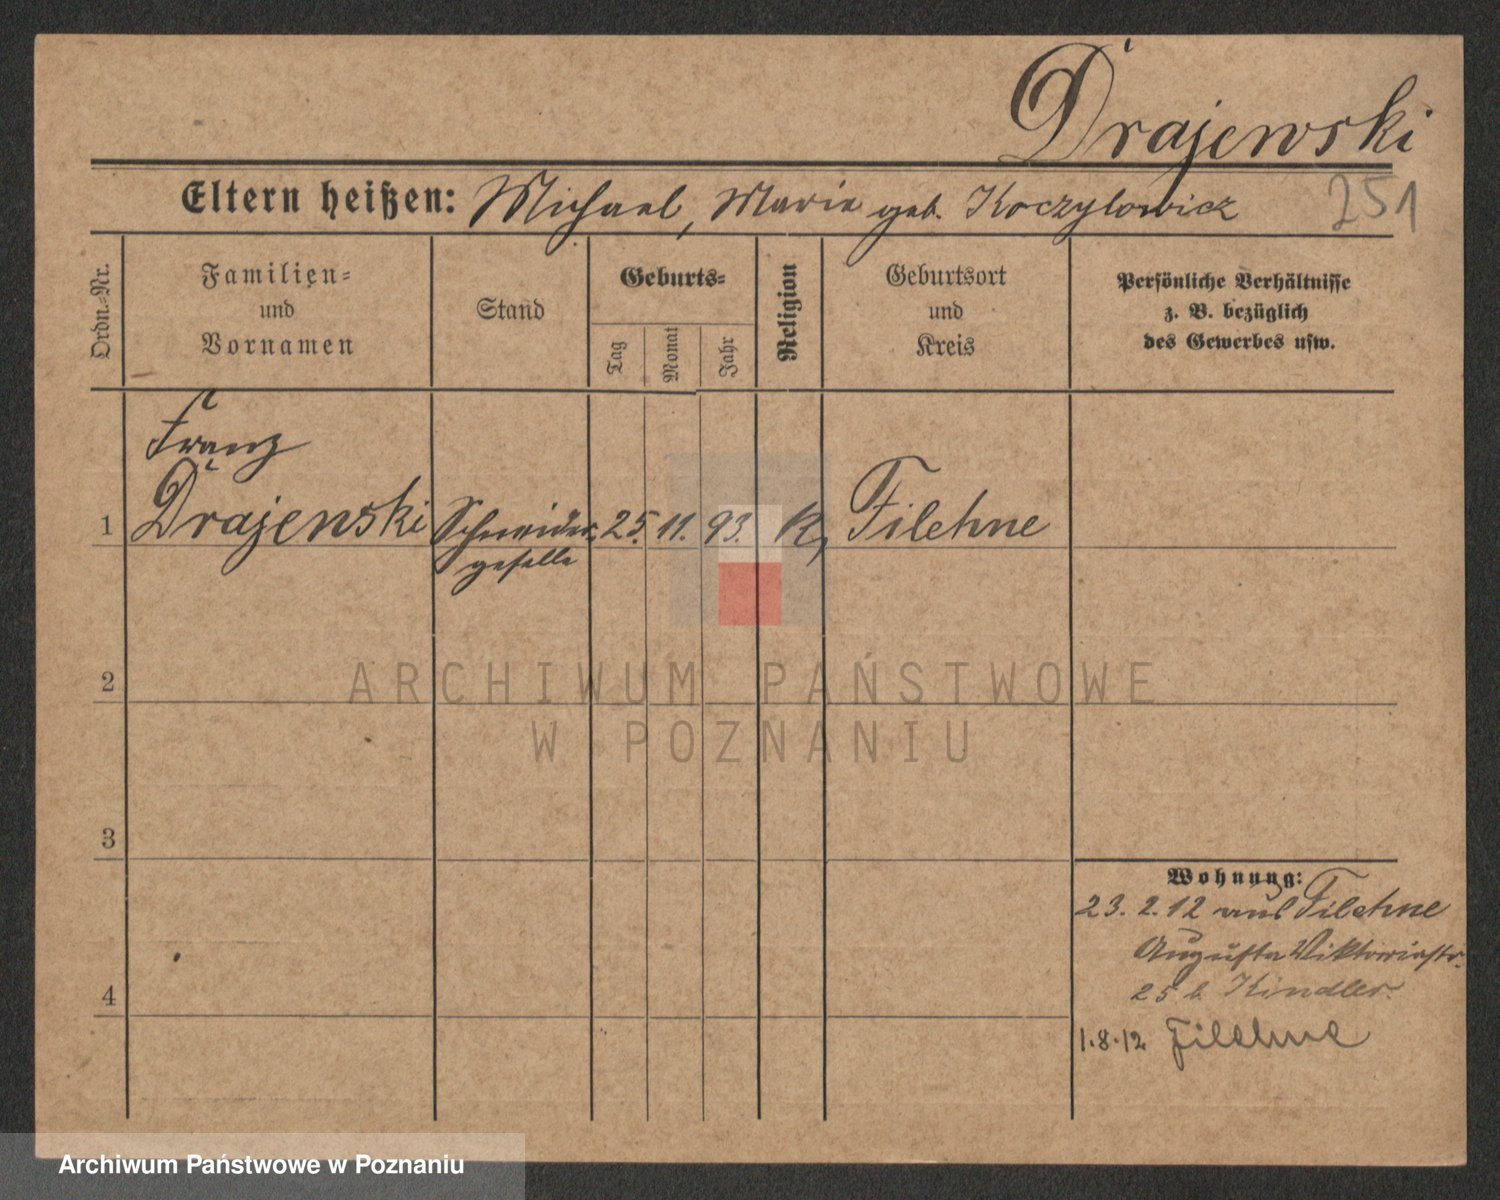 Drajewski
Eltern heißen: Michael, Marie geb. Koczylowicz
251
Ordn.-Nr.
Familien-
und
Vornamen
Stand
Geburts-
Tag
Monat
Jahr
Religion
Geburtsort
und
Kreis
Persönliche Verhältnisse
z. B. bezüglich
des Gewerbes usw.
Franz
1 Drajewski Schneider- 25. 11. 93. K, Filehne
geselle
2
ARCHIWUM PAŃSTWOWE
W POZNANIU
3
Wohnung:
23. 2. 12 aus Filehne
Augusta Viktoriastr.
25 b. Kindler.
4
1.8.12 Filehne
Archiwum Państwowe w Poznaniu